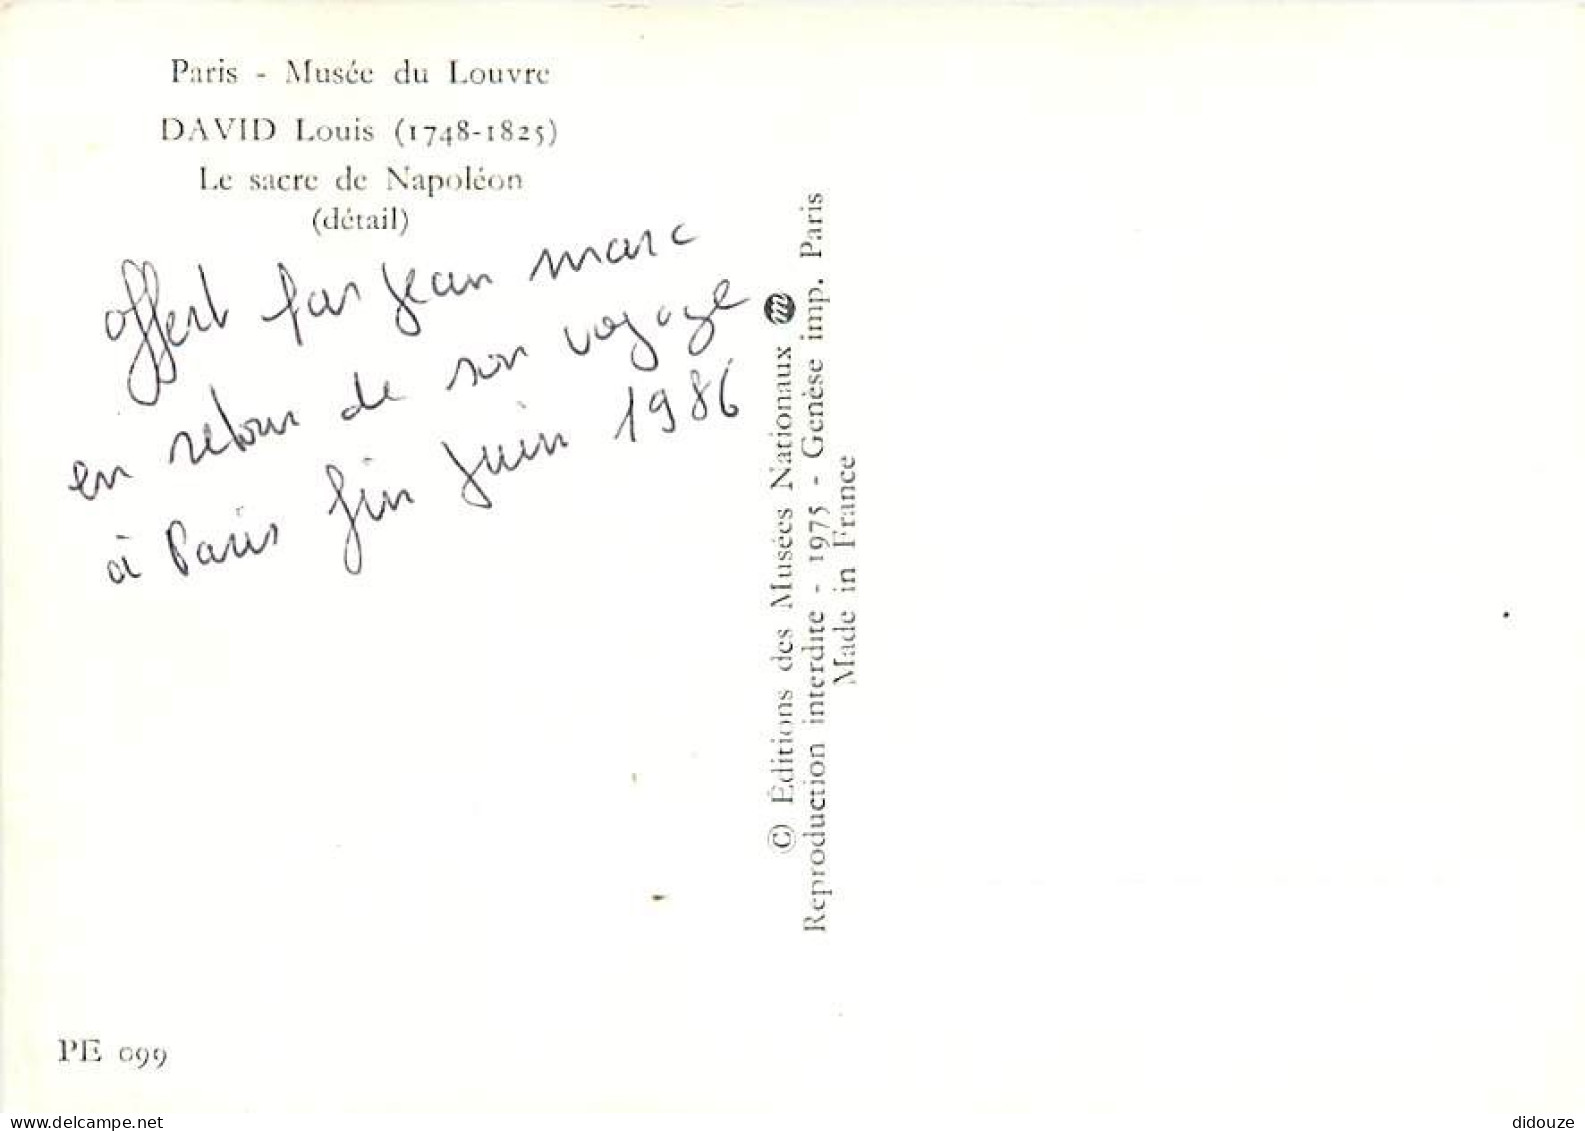 Paris - Musée du Louvre
DAVID Louis (1748-1825)
Le sacre de Napoléon
(détail)
offert par Jean marc
en retour de son voyage
à Paris fin Juin 1986
© Éditions des Musées Nationaux m
Reproduction interdite - 1975 - Genèse imp. Paris
Made in France
PE 099
didouze